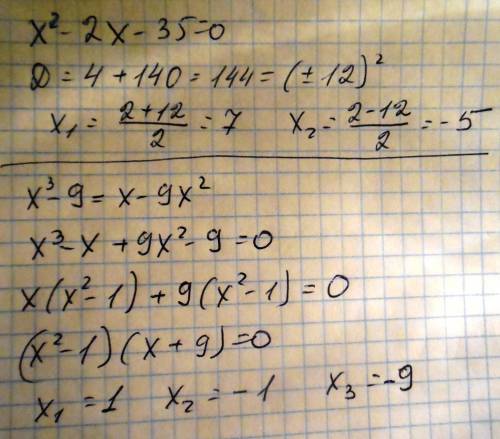 x² - 2x - 35 = 0
D = 4 + 140 = 144 = (± 12)²
x₁ = (2+12)/2 = 7    x₂ = (2-12)/2 = -5
x³ - 9 = x - 9x²
x³ - x + 9x² - 9 = 0
x(x² - 1) + 9(x² - 1) = 0
(x² - 1)(x + 9) = 0
x₁ = 1    x₂ = -1    x₃ = -9